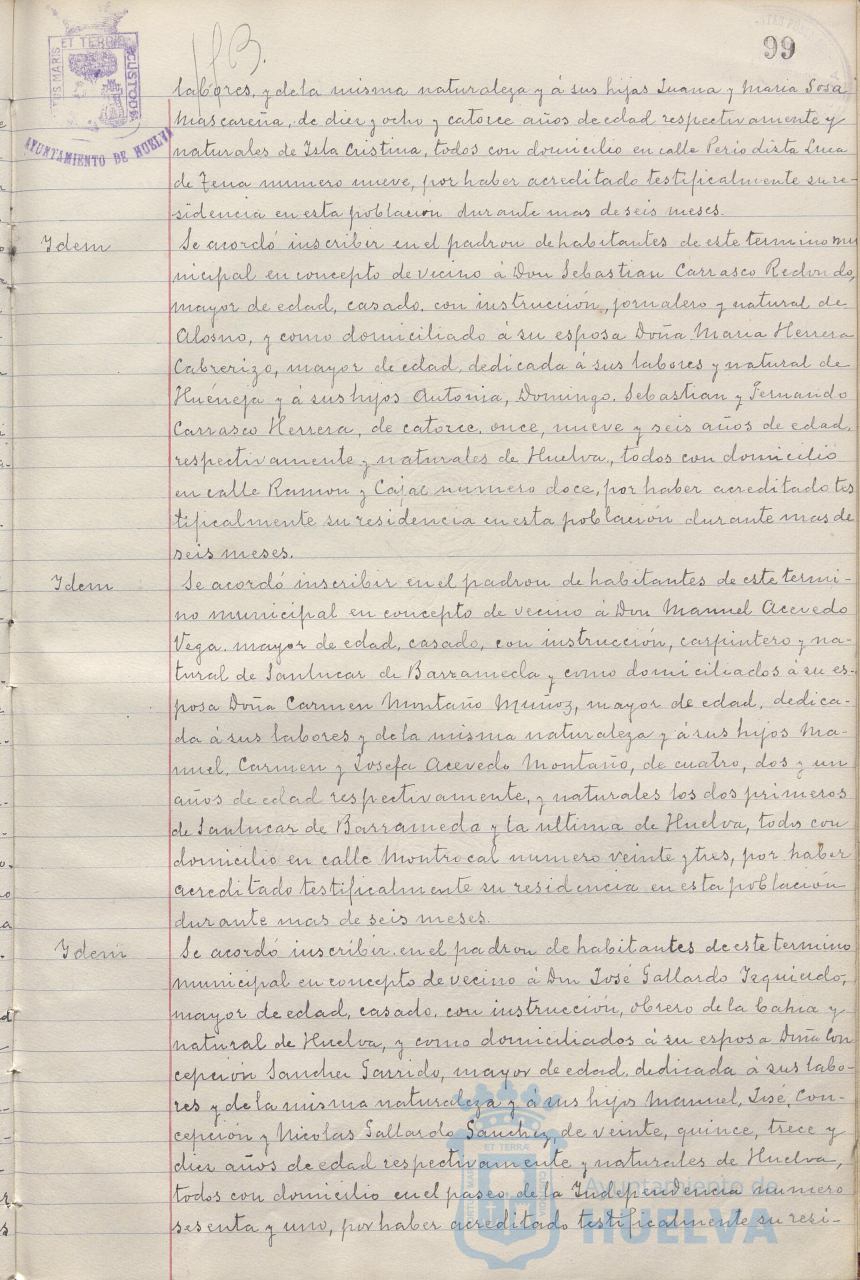 113.
99
ET TERRÆ
TUS MARIS
CUSTODIA
AYUNTAMIENTO DE HUELVA
labores, y de la misma naturaleza y á sus hijas Juana y Maria Sosa
Mascareña, de diez y ocho y catorce años de edad respectivamente y
naturales de Isla Cristina, todos con domicilio en calle Periodista Luca
de Tena numero nueve, por haber acreditado testificalmente su re-
sidencia en esta poblacion durante mas de seis meses.
Idem
Se acordó inscribir en el padron de habitantes de este termino mu
nicipal en concepto de vecino á Don Sebastian Carrasco Redondo,
mayor de edad, casado, con instrucción, jornalero y natural de
Alosno, y como domiciliado á su esposa Doña Maria Herrera
Cabrerizo, mayor de edad, dedicada á sus labores y natural de
Huéneja y á sus hijos Antonia, Domingo, Sebastian y Fernando
Carrasco Herrera, de catorce, once, nueve y seis años de edad,
respectivamente y naturales de Huelva, todos con domicilio
en calle Ramon y Cajal numero doce, por haber acreditado tes
tificalmente su residencia en esta población durante mas de
seis meses.
Idem
Se acordó inscribir en el padron de habitantes de este termi-
no municipal en concepto de vecino á Don Manuel Acevedo
Vega, mayor de edad, casado, con instrucción, carpintero y na-
tural de Sanlucar de Barrameda y como domiciliados á su es-
posa Doña Carmen Montaño Muñoz, mayor de edad, dedica-
da á sus labores y de la misma naturaleza y á sus hijos Ma-
nuel, Carmen y Josefa Acevedo Montaño, de cuatro, dos y un
años de edad respectivamente, y naturales los dos primeros
de Sanlucar de Barrameda y la ultima de Huelva, todos con
domicilio en calle Montrocal numero veinte y tres, por haber
acreditado testificalmente su residencia en esta población
durante mas de seis meses.
Idem
Se acordó inscribir en el padron de habitantes de este termino
municipal en concepto de vecino á Don José Gallardo Izquierdo,
mayor de edad, casado, con instrucción, obrero de la Bahia y
natural de Huelva, y como domiciliados á su esposa Doña Con
cepción Sanchez Garrido, mayor de edad, dedicada á sus labo-
res y de la misma naturaleza y á sus hijos Manuel, José, Con-
cepción y Nicolas Gallardo Sanchez, de veinte, quince, trece y
diez años de edad respectivamente y naturales de Huelva,
todos con domicilio en el paseo de la Independencia numero
sesenta y uno, por haber acreditado testificalmente su resi-
ET TERRÆ
Ayuntamiento de
HUELVA